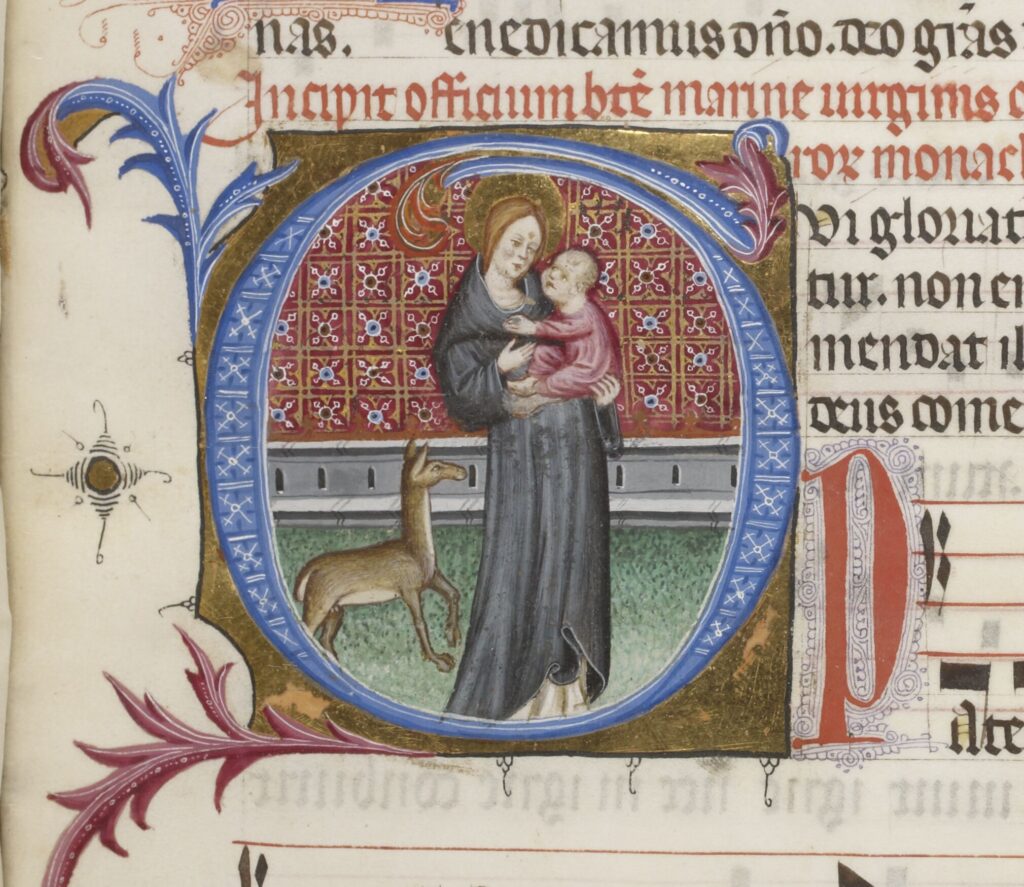 nas. enedicamus dño. deo grãs
Incipit officium btẽ marine uirginis
ror monach
Qui gloriat
tur. non en
mendat il
deus come
P
ate